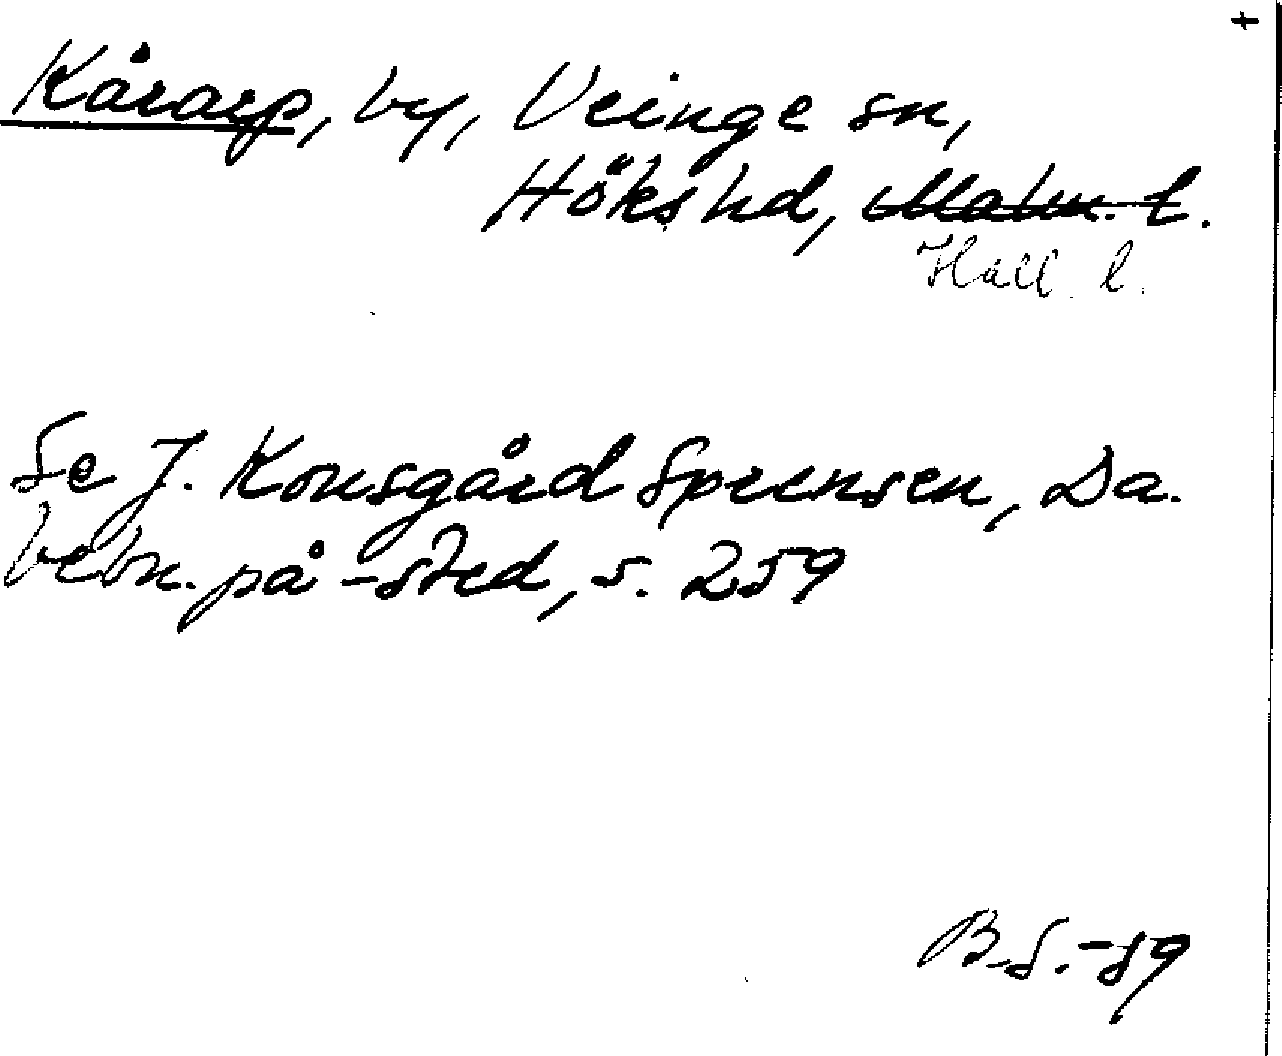 +
Kårarp, by, Veinge sn,
Höks hd, Malm. l.
Hall. l.
Se J. Kousgård Sørensen, Da.
bebn. på -sted, s. 259
B.S. -89